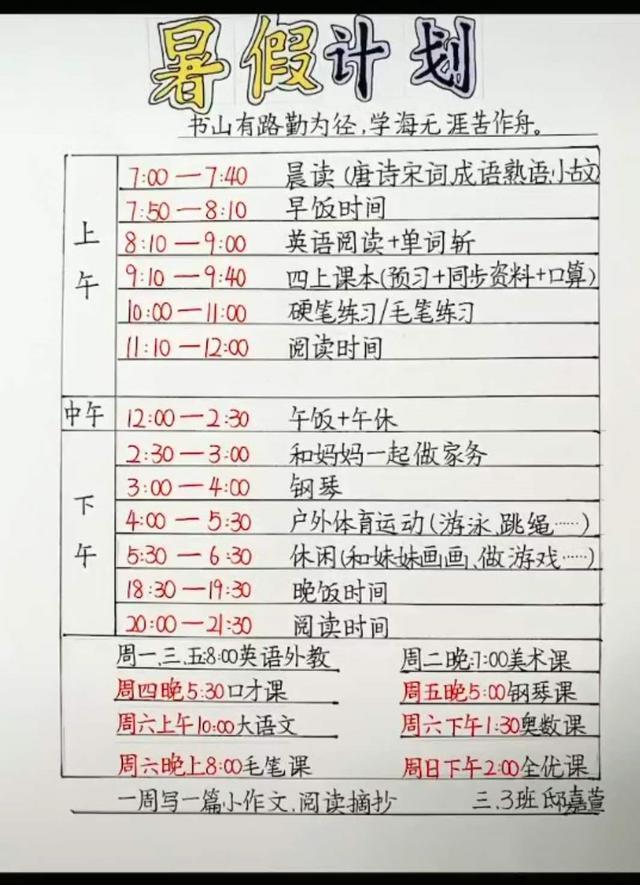 暑假计划
书山有路勤为径,学海无涯苦作舟。
上午
7:00—7:40 晨读(唐诗宋词,成语熟语,小古文)
7:50—8:10 早饭时间
8:10—9:00 英语阅读+单词斩
9:10—9:40 四上课本(预习+同步资料+口算)
10:00—11:00 硬笔练习/毛笔练习
11:10—12:00 阅读时间
中午 12:00—2:30 午饭+午休
下午
2:30—3:00 和妈妈一起做家务
3:00—4:00 钢琴
4:00—5:30 户外体育运动(游泳、跳绳……)
5:30—6:30 休闲(和妹妹画画、做游戏……)
18:30—19:30 晚饭时间
20:00—21:30 阅读时间
周一、三、五8:00英语外教 周二晚:7:00美术课
周四晚5:30口才课 周五晚5:00钢琴课
周六上午10:00大语文 周六下午1:30奥数课
周六晚上8:00毛笔课 周日下午2:00全优课
一周写一篇小作文、阅读摘抄 三.3班 邸嘉萱